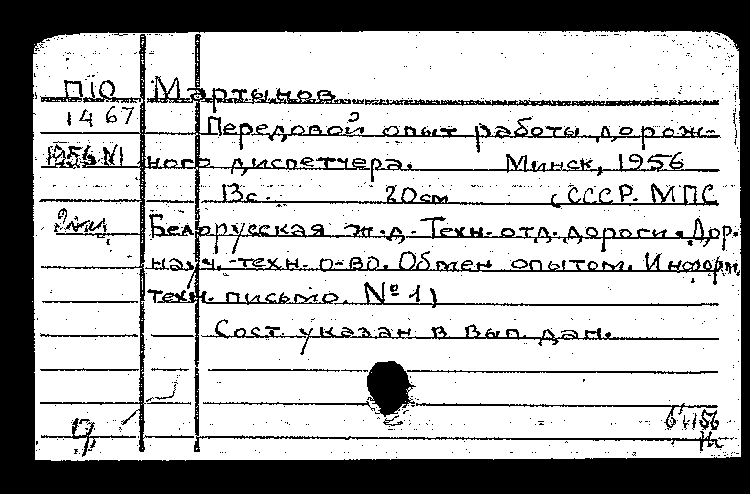 П10 Мартынов
1467 Передовой опыт работы дорож-
1956 N1 ного диспетчера. Минск, 1956
13с. 20см (СССР. МПС
2 экз. Белорусская ж.д. Техн. отд. дороги. Дор.
науч.-техн. о-во. Обмен опытом. Информ.
техн. письмо. № 1)
Сост. указан в вып. дан.